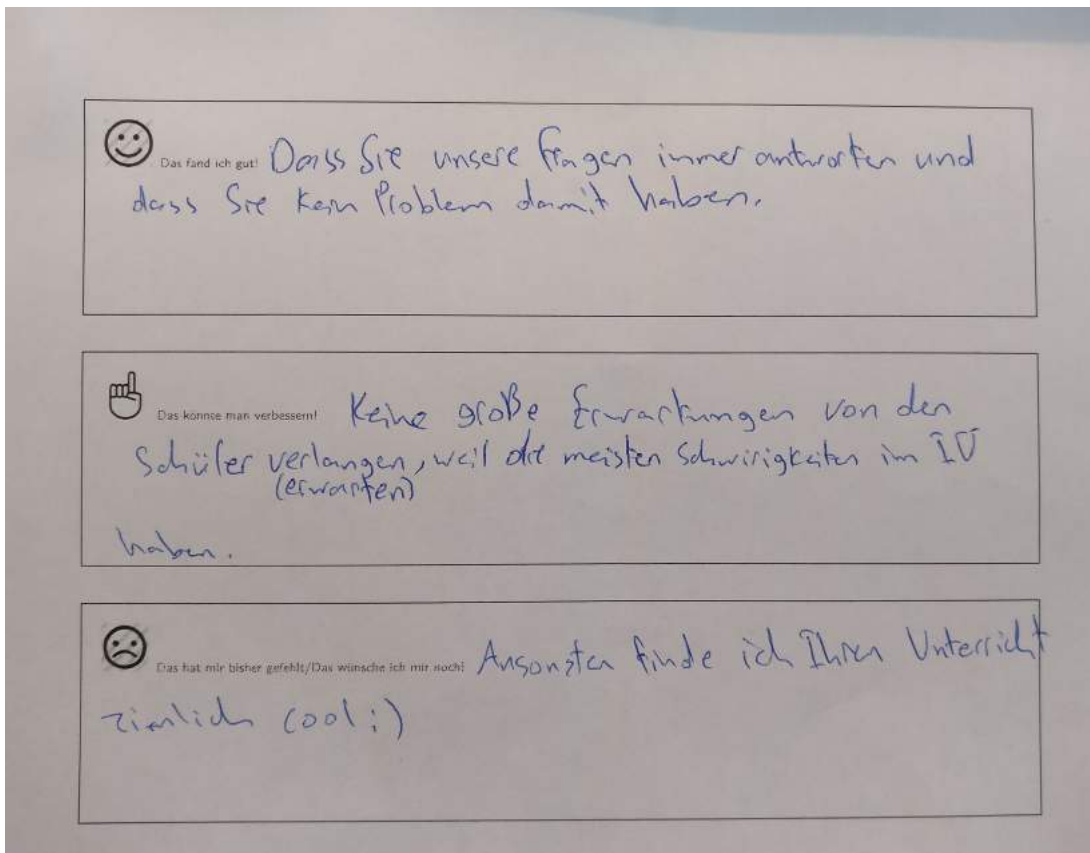 Das fand ich gut! Dass Sie unsere Fragen immer antworten und
dass Sie kein Problem damit haben.
Das könnte man verbessern! Keine große Erwartungen von den
Schüler verlangen, weil die meisten Schwirigkeiten im
(erwarten)
haben.
Das hat mir bisher gefehlt/Das wünsche ich mir noch! Ansonsten finde ich Ihren Unterricht
ziemlich cool ;)